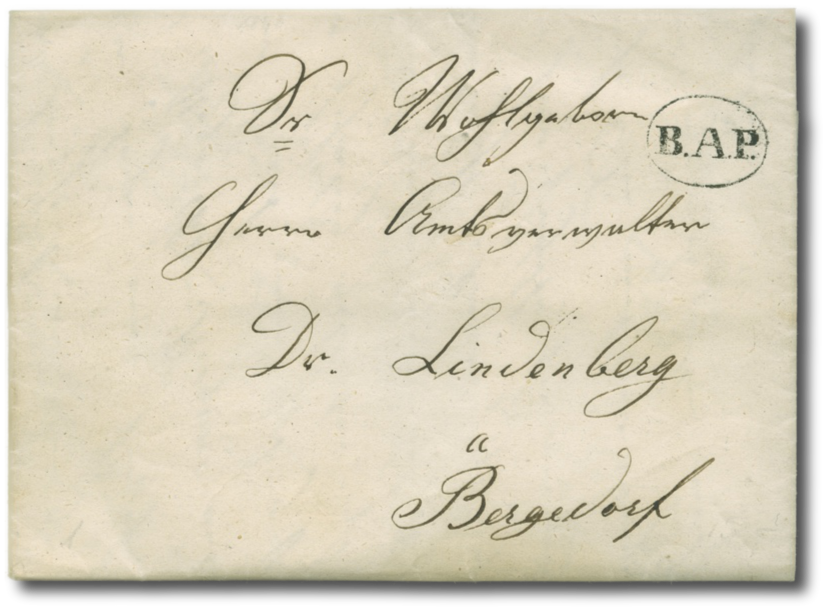 Sr Wohlgeborn
B.A.P.
Herrn Amtsverwalter
Dr. Lindenberg
a
Bergedorf